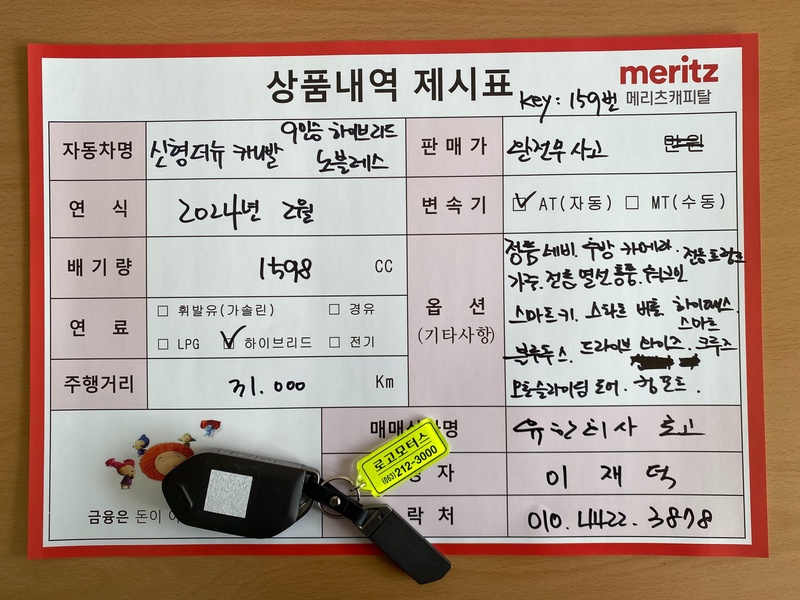 상품내역 제시표
meritz
메리츠캐피탈
Key: 159번
자동차명
9인승 하이브리드
신형더뉴 카니발 노블레스
판매가
완전무사고
만원
연 식
2024년 2월
변속기
AT(자동) MT(수동)
배기량
1598 CC
옵 션
(기타사항)
정품 네비. 후방 카메라. 전동트렁크
가죽. 전동 열선 통풍.
스마트키. 스타트 버튼. 하이패스.
스마트
블루투스. 드라이브 와이즈. 크루즈
오토슬라이딩 도어.
연 료
휘발유(가솔린) 경유
LPG 하이브리드 전기
주행거리
31.000 Km
매매
명
유한회사 로고
자
이 재 덕
락 처
010.4422.3878
로고모터스
(063)212-3000
금융은 돈이